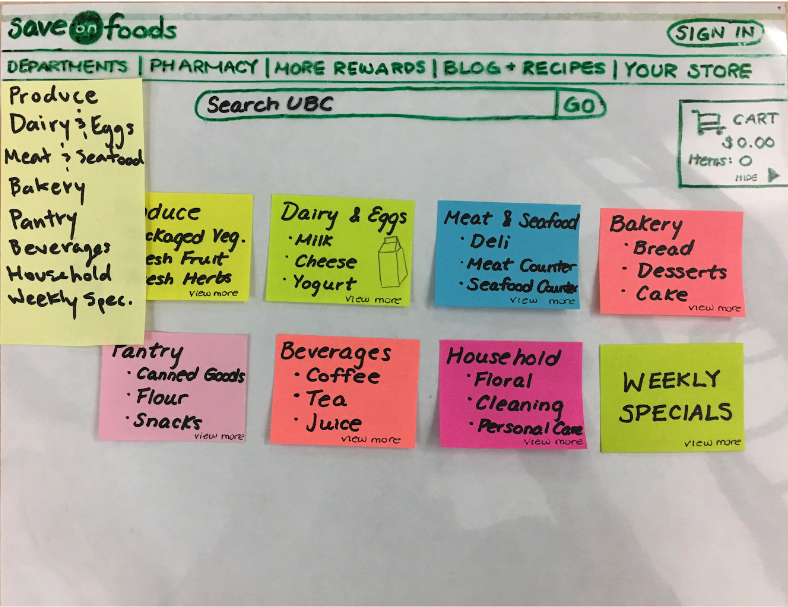 save on foods
SIGN IN
DEPARTMENTS | PHARMACY | MORE REWARDS | BLOG + RECIPES | YOUR STORE
Search UBC GO
CART
$0.00
Items: 0
HIDE
Produce
Dairy & Eggs
Meat & Seafood
Bakery
Pantry
Beverages
Household
Weekly Spec.
oduce
ckaged Veg.
esh Fruit
esh Herbs
view more
Dairy & Eggs
· Milk
· Cheese
· Yogurt
view more
Meat & Seafood
· Deli
· Meat Counter
· Seafood Counter
view more
Bakery
· Bread
· Desserts
· Cake
view more
Pantry
· Canned Goods
· Flour
· Snacks
view more
Beverages
· Coffee
· Tea
· Juice
view more
Household
· Floral
· Cleaning
· Personal Care
view more
WEEKLY
SPECIALS
view more